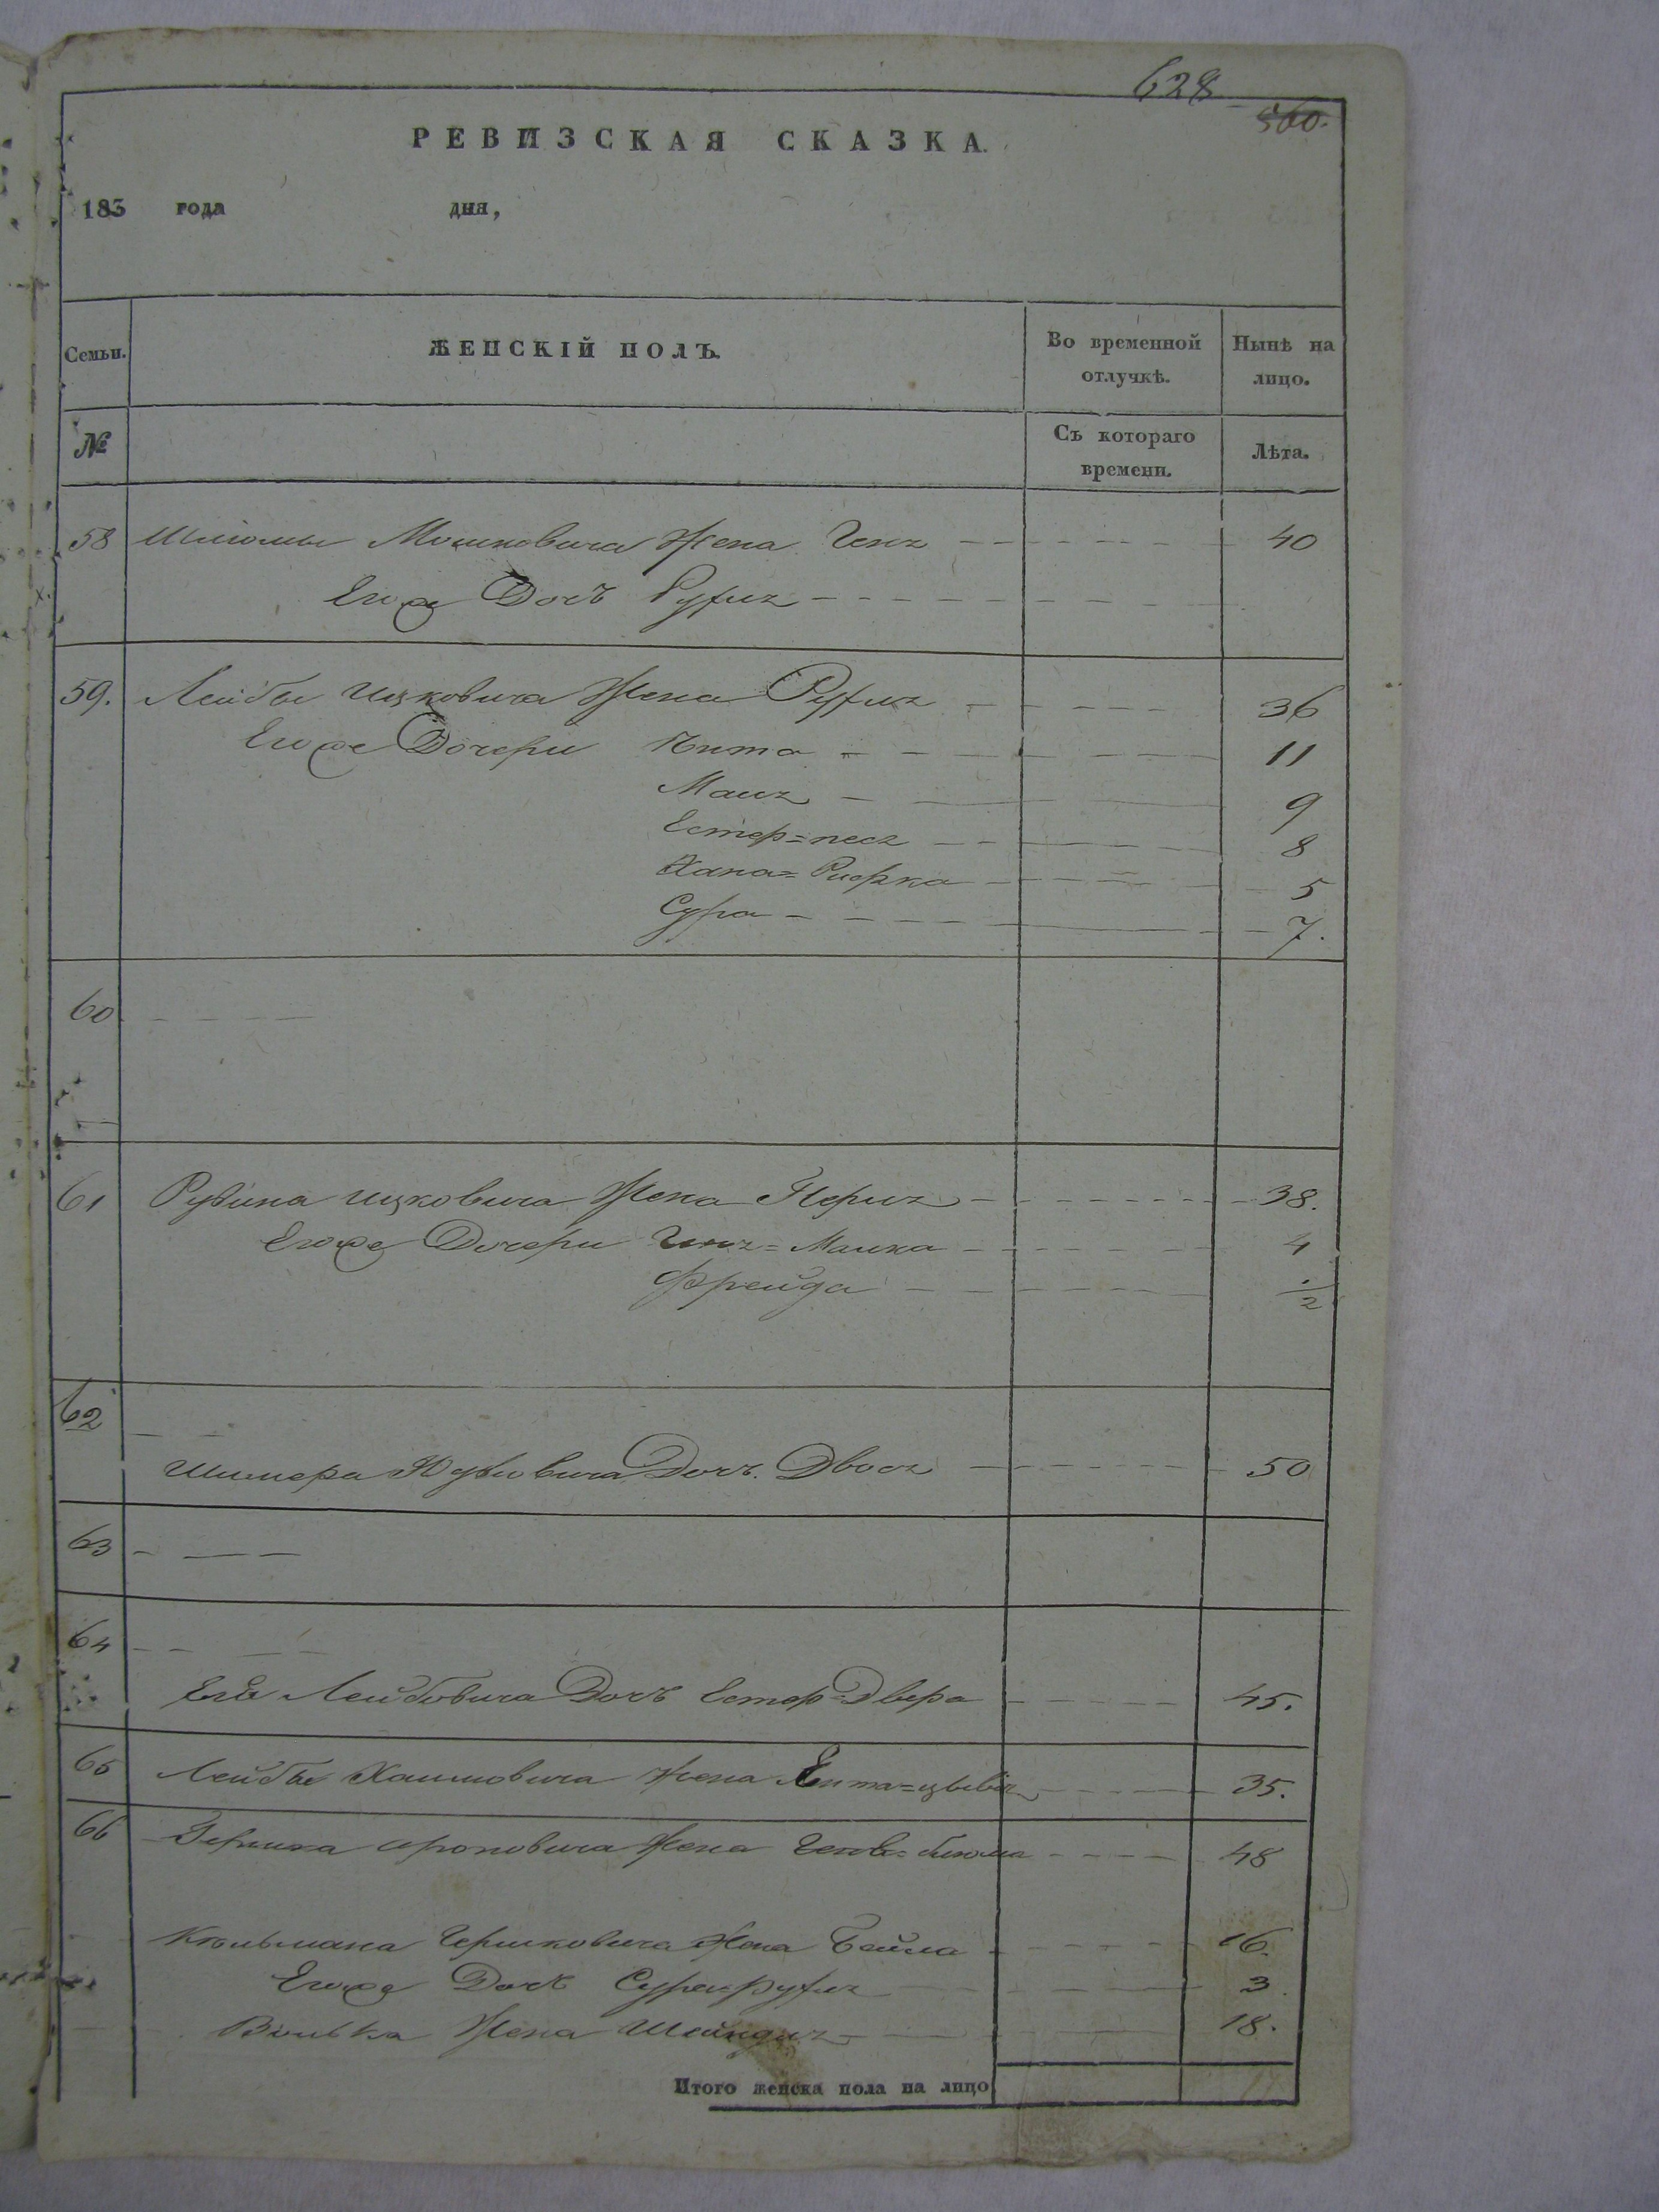 628
560.
РЕВИЗСКАЯ СКАЗКА.
183 года дня,
Семьи. ЖЕНСКІЙ ПОЛЪ. Во временной отлучкѣ. Нынѣ на лицо.
№ Съ котораго времени. Лѣта.
58 Шліомы Мошковича Жена Геня 40
Егоже Дочь Рухля
59. Лейбы Ицковича Жена Рухля 36
Егоже Дочери Гита 11
Маля 9
Естер=песя 8
Хана=Рифка 5
Сура 7.
60
61 Рувина Ицковича Жена Перля 38.
Егоже Дочери Геня=Малка 4
Фрейда 1/2
62
Шмиера Дочь. Двося 50
63
64
Лейбовича Дочь Естер=Двера 45.
65 Лейбы Хаимовича жена Ента=цывія 35.
66 Гершка Жена 48
Кельмана Гершковича Жена Бейла 16.
Егоже Дочь Сура=Рухля 3.
Волька Жена Шейндля 18.
Итого женска пола на лицо